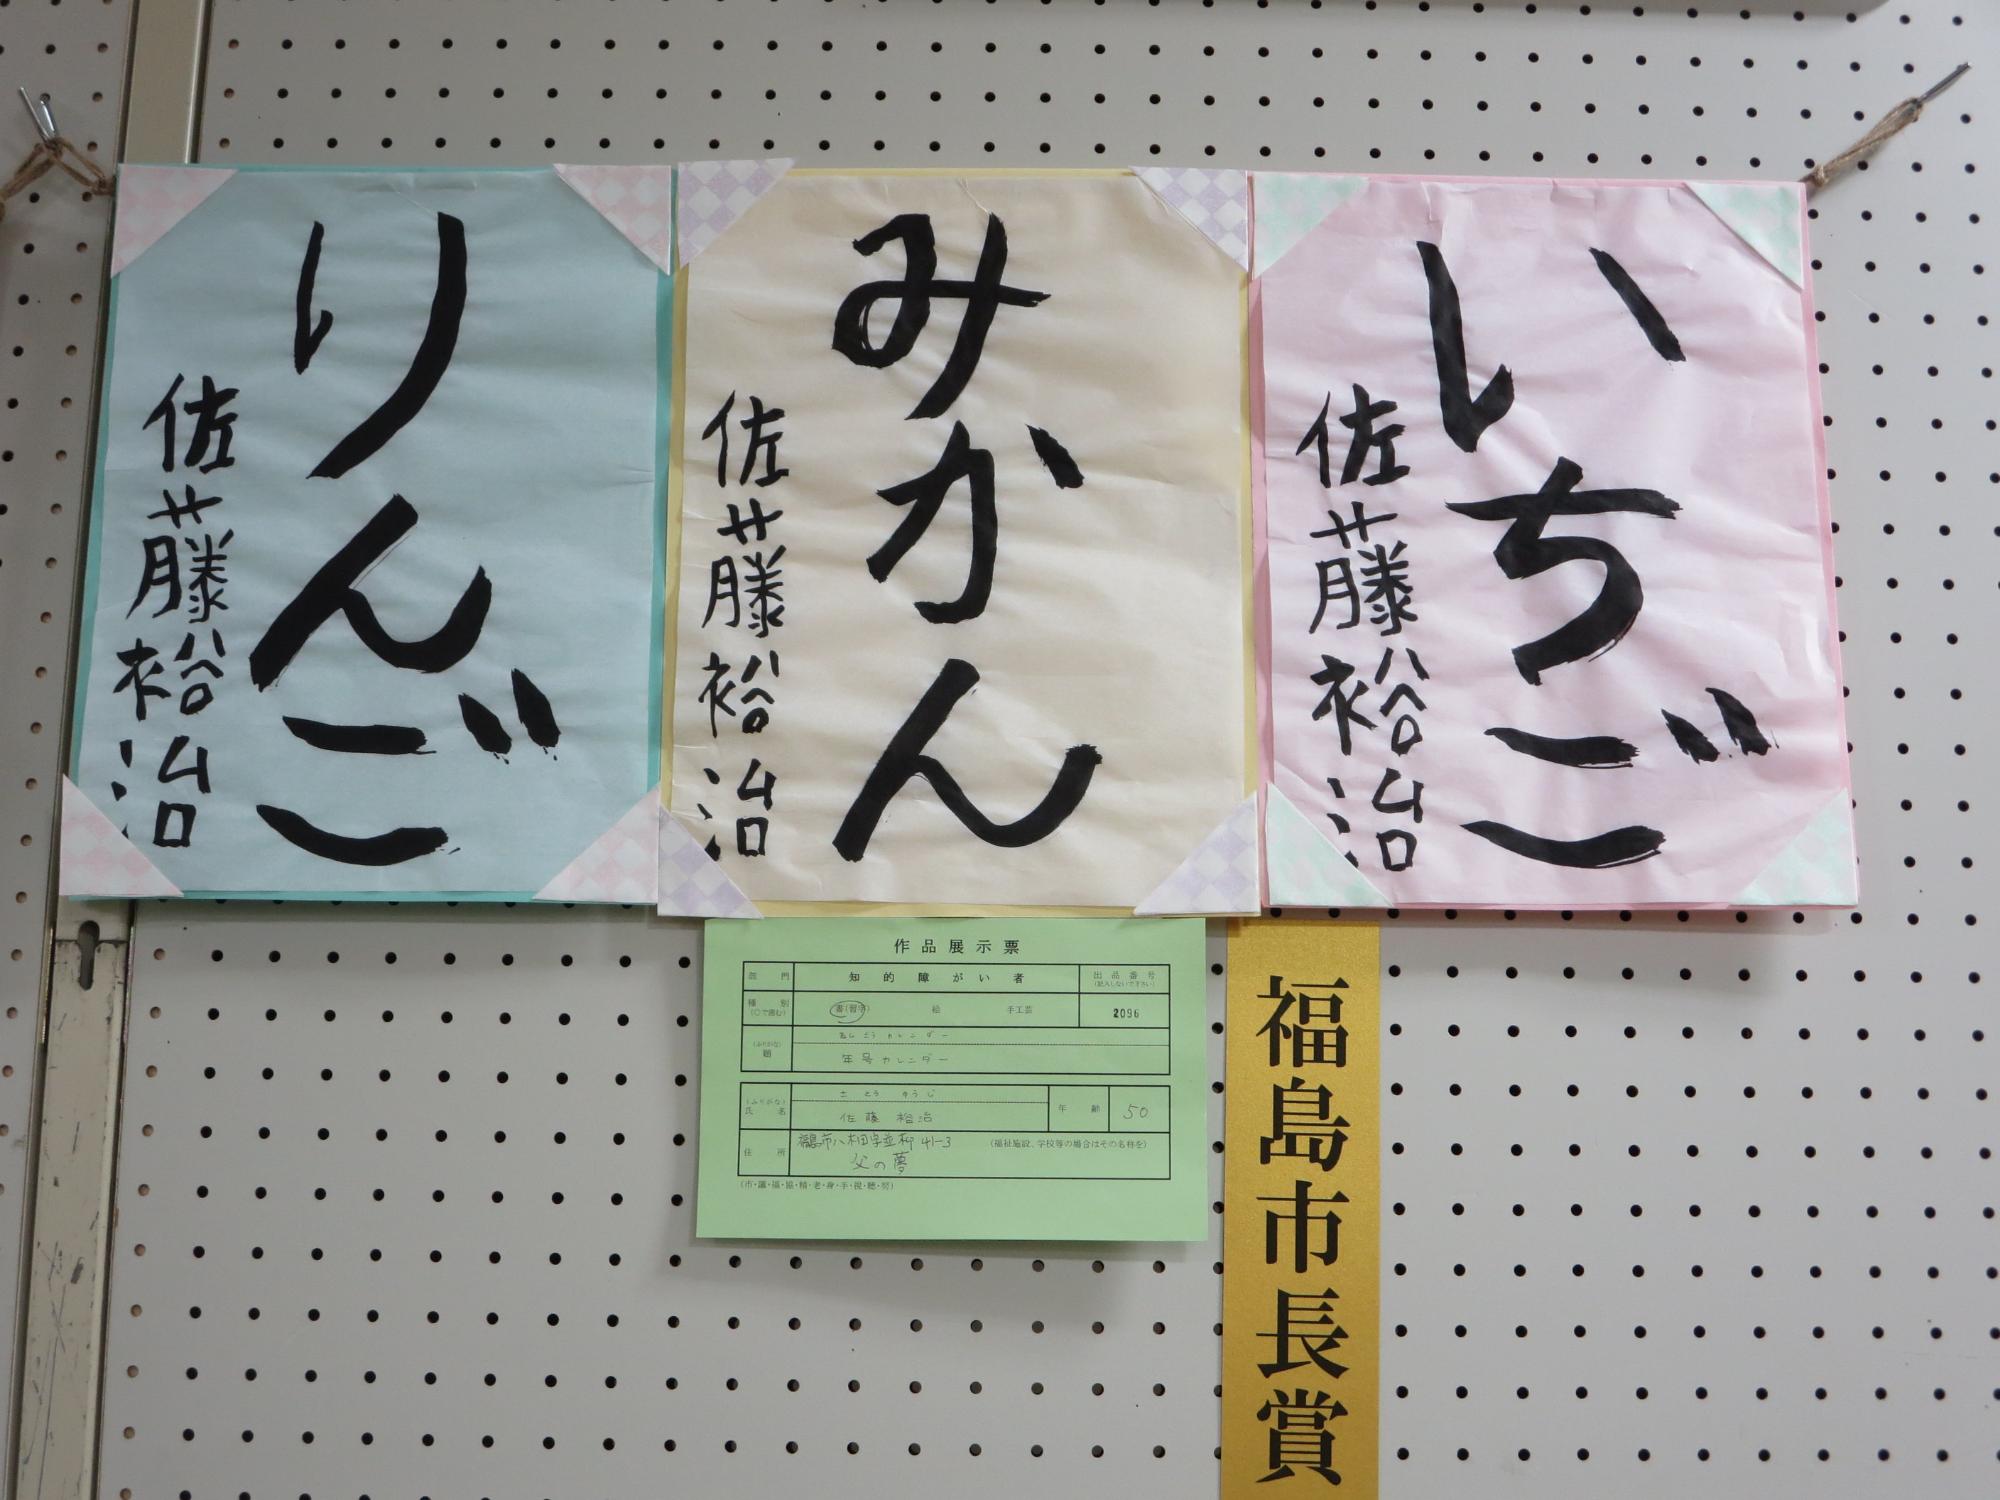 いちご
佐藤裕治
みかん
佐藤裕治
りんご
佐藤裕治
作品展示票
部門 知的障がい者 出品番号
(記入しないで下さい)
種別
(○で囲む)
書(習字) 絵 手工芸 2096
(ふりがな)
題
ねんごうカレンダー
年号カレンダー
(ふりがな)
氏名
さとう ゆうじ
佐藤裕治
年齢 50
住所
福島市八木田字並柳41-3
(福祉施設、学校等の場合はその名称を)
父の夢
(市・議・福・協・精・老・身・手・視・聴・労)
福島市長賞